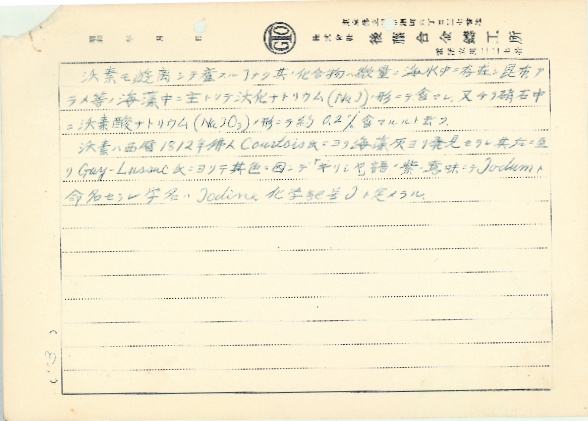 昭和 年 月 日
株式会社 後藤合金鑄工所
沃素モ遊離シテ産スルコトナク其ノ化合物ハ微量ニ海水中ニ存在シ昆布アラメ
等ノ海藻中ニ主トシテ沃化ナトリウム(NaJ)ノ形ニテ含マレ、又チリ硝石中
ニ沃素酸ナトリウム(NaJO3)ノ形ニテ約 0.2% 含マルルト云フ。
沃素ハ西暦1812年佛人Courtois氏ニヨリ海藻灰ヨリ発見セラレ其ノ
Gay-Lussac氏ニヨリテ其色ニ因ンデ「ギリシヤ語」ノ紫ノ意味ニテJodumト
命名セラレ学名ハJodine 化学記号Jト定メラル。
(3)